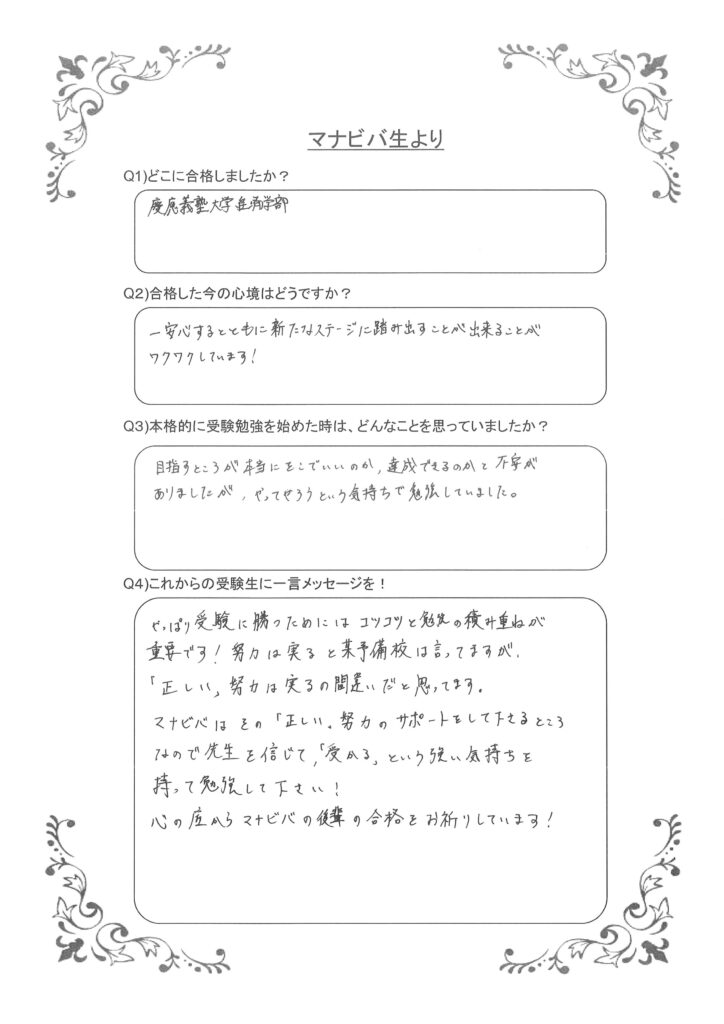 マナビバ生より
Q1)どこに合格しましたか？
慶應義塾大学 商学部
Q2)合格した今の心境はどうですか？
一安心するとともに新たなステージに踏み出すことが出来ることが
ワクワクしています！
Q3)本格的に受験勉強を始めた時は、どんなことを思っていましたか？
目指すところが本当にそこでいいのか, 達成できるのかと不安が
ありましたが, やってやろうという気持ちで勉強していました。
Q4)これからの受験生に一言メッセージを！
やっぱり受験に勝つためにはコツコツと勉強の積み重ねが
重要です！努力は実ると某予備校は言ってますが、
「正しい」努力は実るの間違いだと思ってます。
マナビバはその「正しい」努力のサポートをして下さるところ
なので先生を信じて,「受かる」という強い気持ちを
持って勉強して下さい！
心の底からマナビバの後輩の合格をお祈りしています！